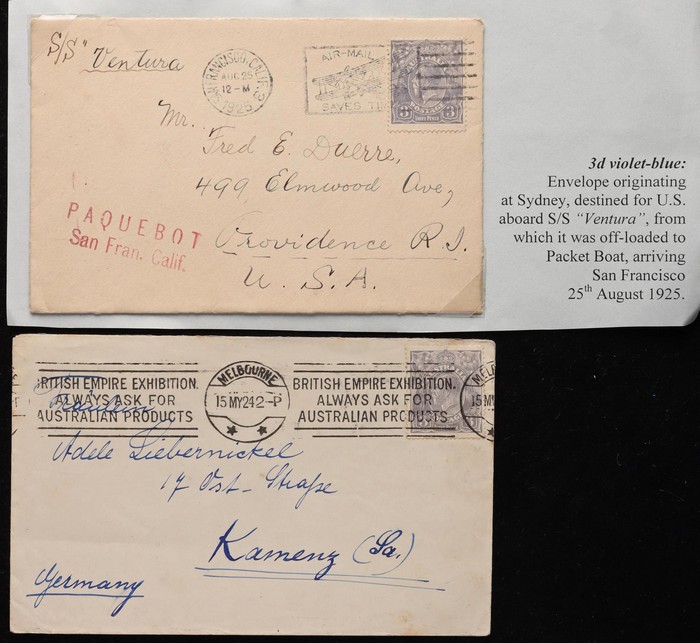 S/S "Ventura
SAN FRANCISCO, CALIF.
AUG 25
12-M
1925
AIR-MAIL
SAVES TIM
AUSTRALIA
POSTAGE
3 THREE PENCE 3
Mr.
Fred E. Duerre,
499 Elmwood Ave,
Providence R.I.
U. S. A.
PAQUEBOT
San Fran. Calif.
3d violet-blue:
Envelope originating
at Sydney, destined for U.S.
aboard S/S "Ventura", from
which it was off-loaded to
Packet Boat, arriving
San Francisco
25th August 1925.
BRITISH EMPIRE EXHIBITION.
ALWAYS ASK FOR
AUSTRALIAN PRODUCTS
MELBOURNE
15MY242-P
BRITISH EMPIRE EXHIBITION.
ALWAYS ASK FOR
AUSTRALIAN PRODUCTS
MELB
15MY
Fräulein
Adele Liebernickel
17 Ost-Straße
Kamenz (Sa.)
Germany